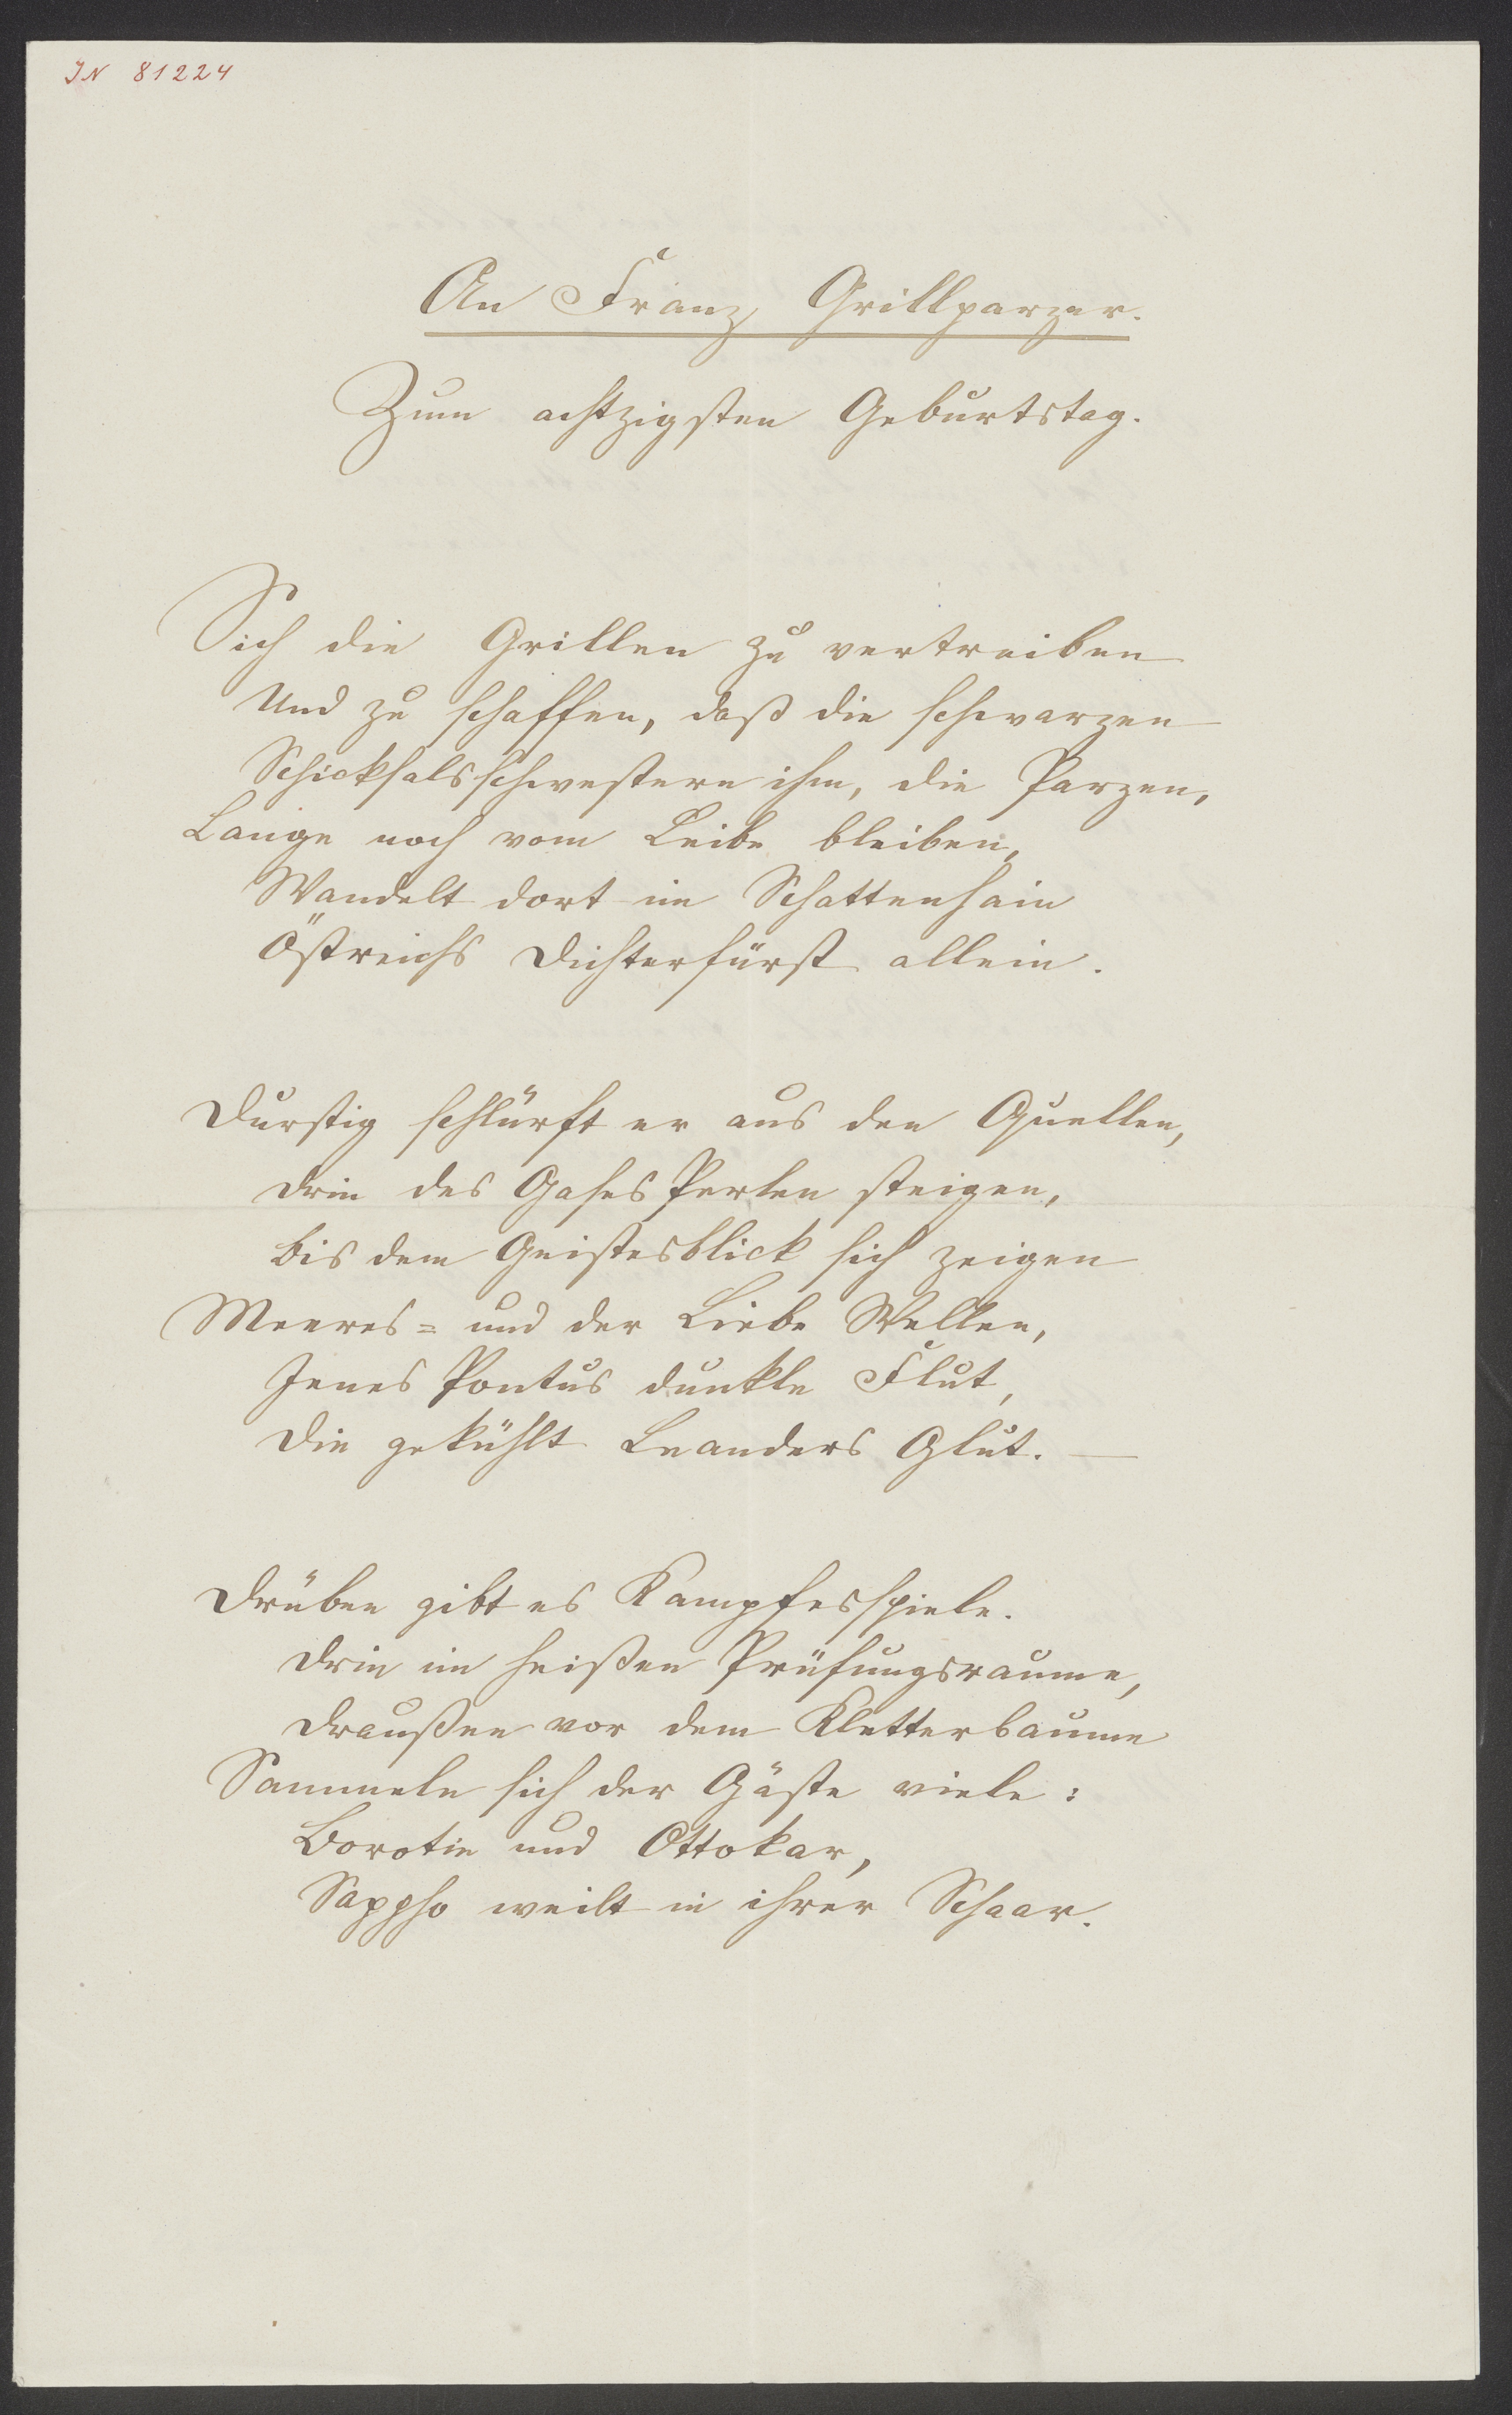 IN 81224
An Franz Grillparzer.
Zum achtzigsten Geburtstag.
Sich die Grillen zu vertreiben
Und zu schaffen, daß die schwarzen
Schicksalsschwestern ihm, die Parzen,
Lange noch vom Leibe bleiben,
Wandelt dort im Schattenhain
Östreichs Dichterfürst allein.
Durstig schlürft er aus den Quellen,
Drin des Gases Perlen steigen,
Bis dem Geistesblick sich zeigen
Meeres= und der Liebe Wellen,
Jenes Pontus dunkle Flut,
Die gekühlt Leanders Glut. —
Drüben gibt es Kampfesspiele.
Drin im heißen Prüfungsraume,
Draußen vor dem Kletterbaume
Sammeln sich der Gäste viele:
Borotin und Ottokar,
Sappho weilt in ihrer Schaar.